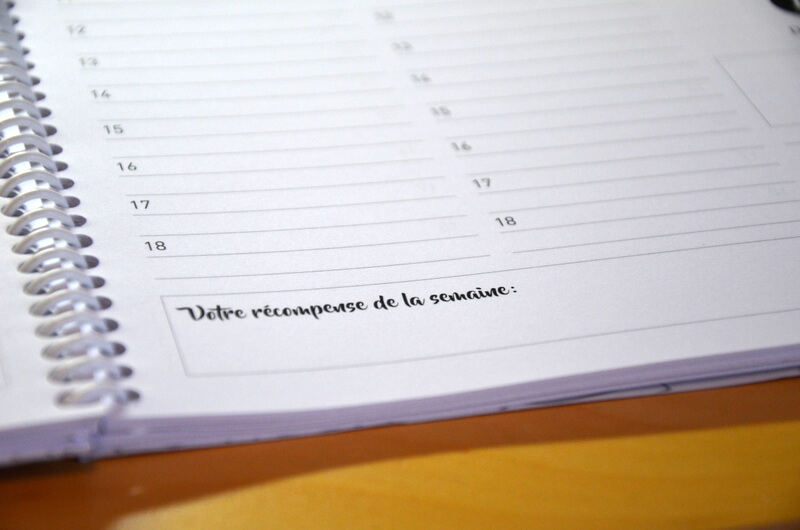 12
13
14
15
16
17
18
12
13
14
15
16
17
18
Votre récompense de la semaine: